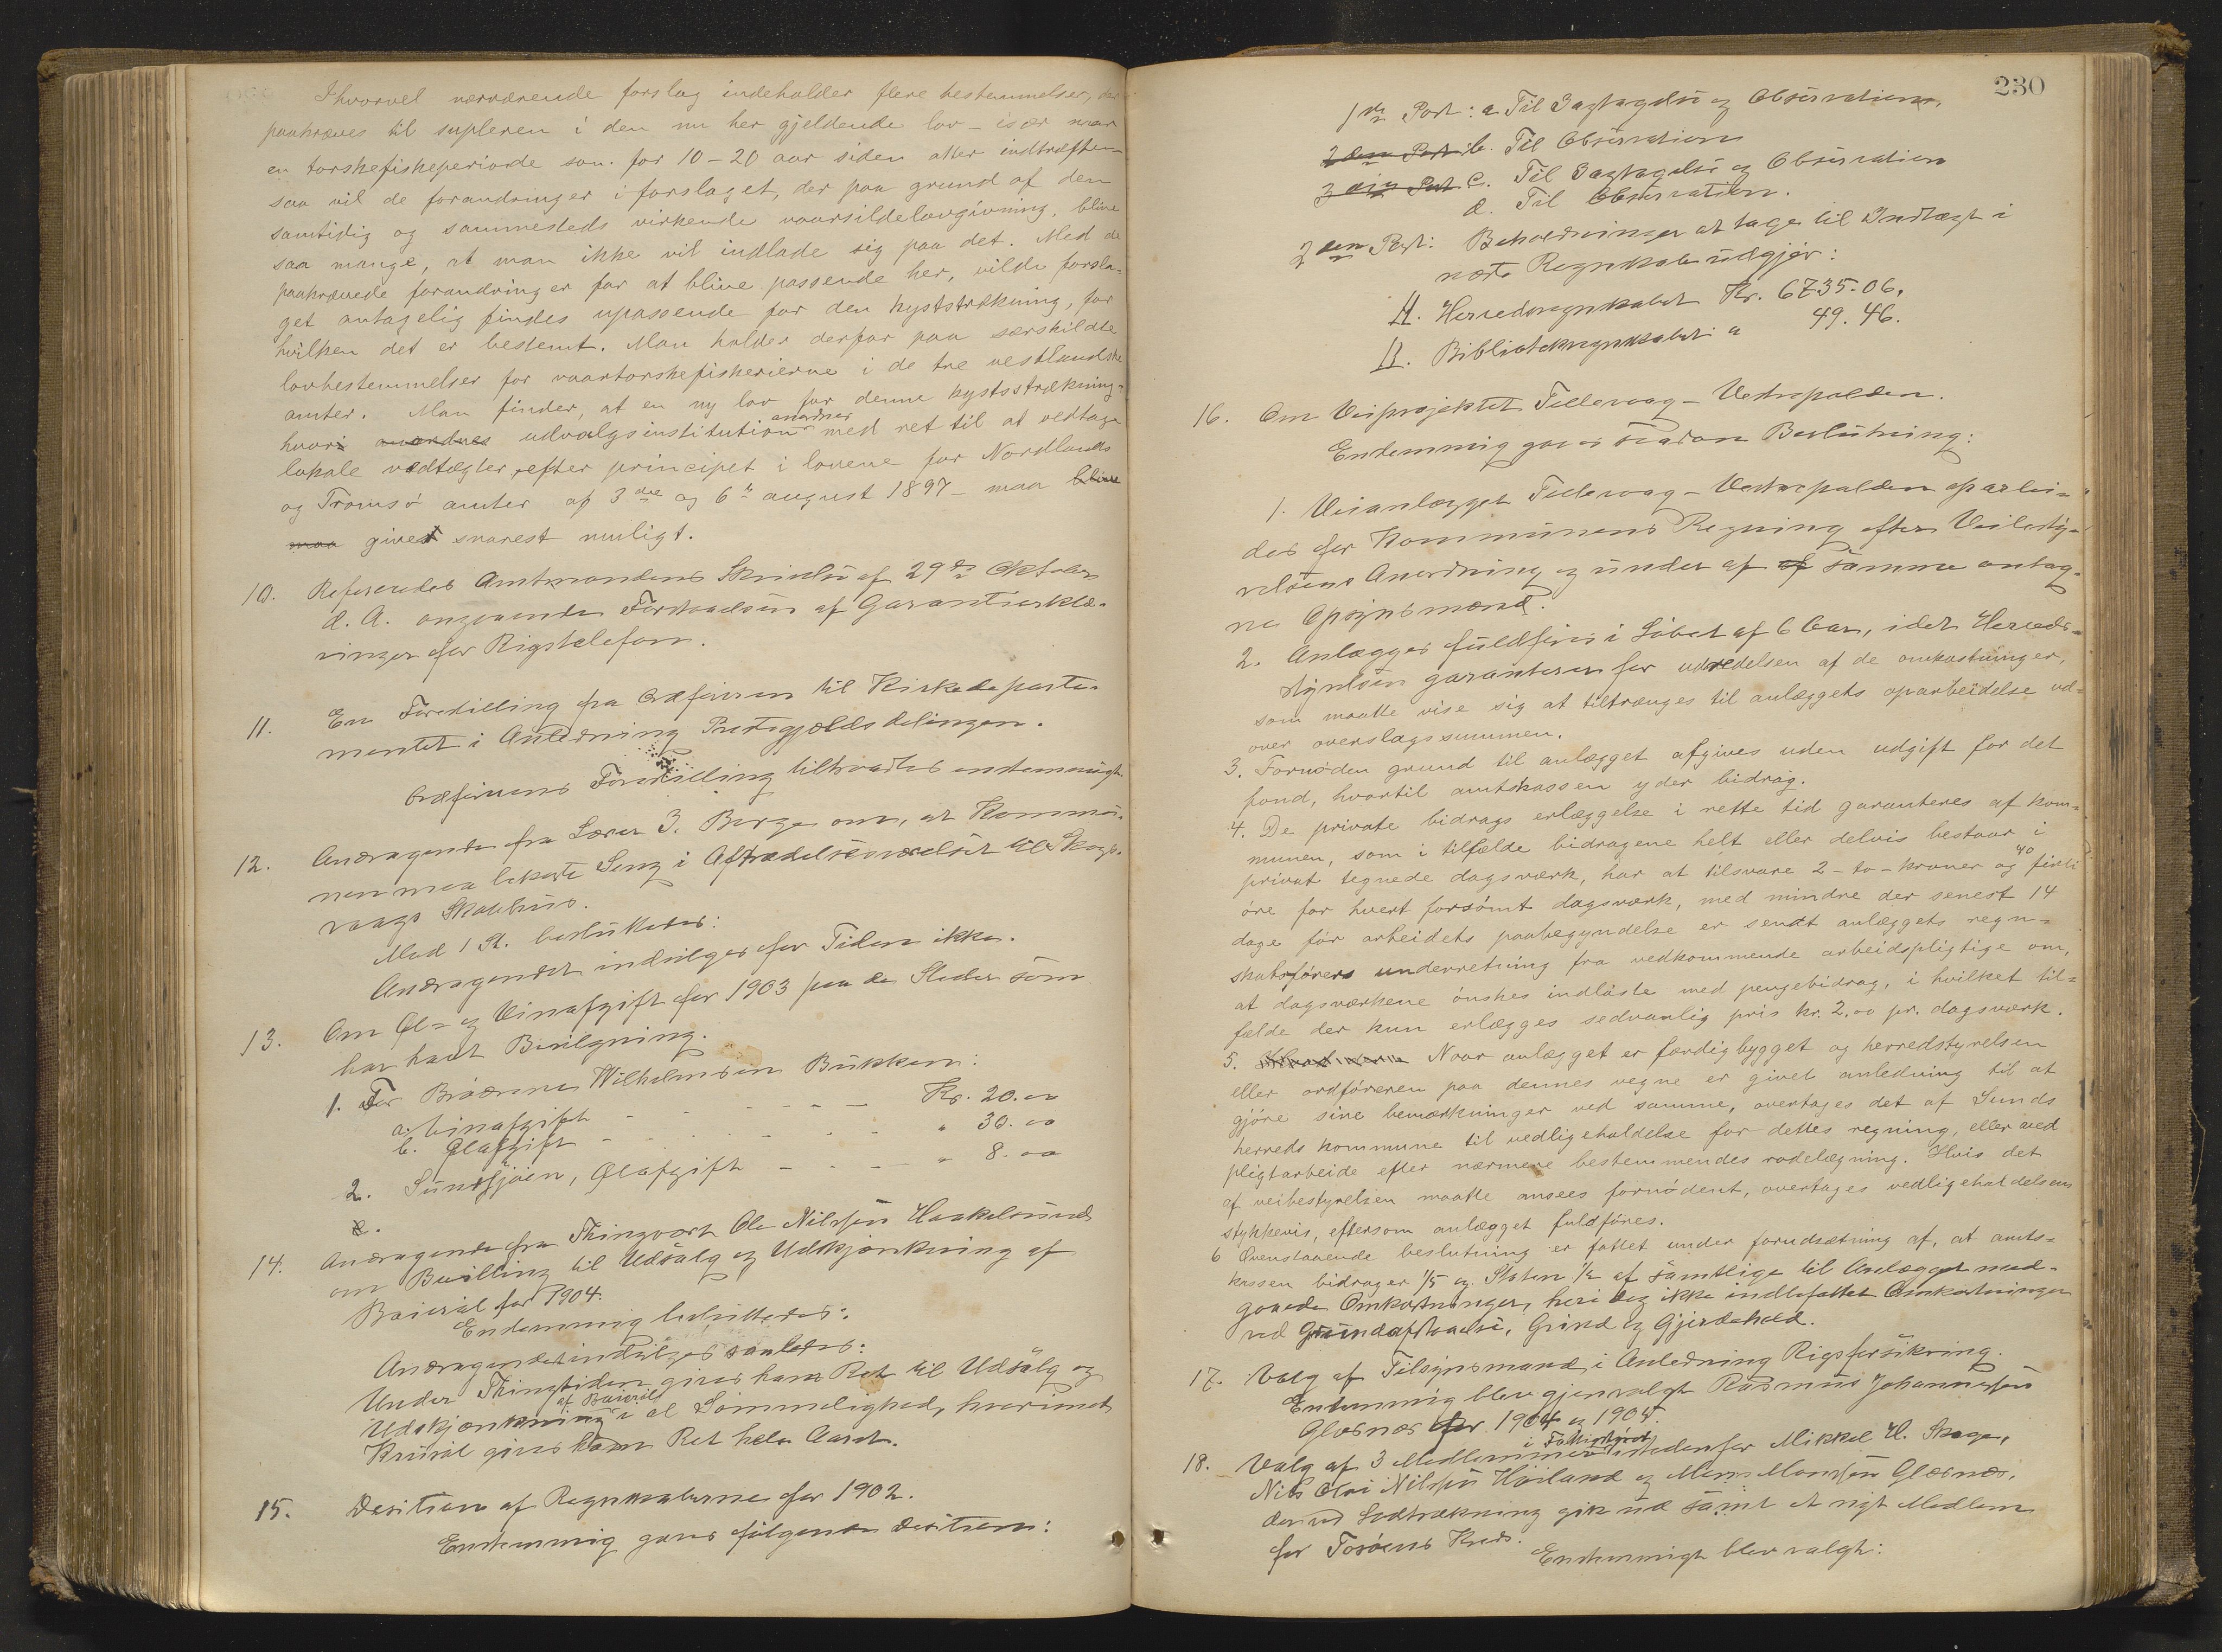 Ihvorvel nærværende forslag indeholder flere bestemmelser, der
paakræves til supleren i den nu her gjeldende lov - især naar
en torskefiskeperiode som for 10-20 aar siden atter indtræffer -
saa vil de forandringer i forslaget, der paa grund af den
samtidig og sammesteds virkende vaarsildelovgivning, blive
saa mange, at man ikke vil indlade sig paa det. Med de
paakrævede forandringer for at blive passende her, vilde forsla-
get antagelig findes upassende for den kyststrækning, for
hvilken det er bestemt. Man holder derfor paa særskildte
lovbestemmelser for vaartorskefiskerierne i de tre vestlandske
amter. Man finder, at en ny lov for denne kyststrækning -
hvori anordnes udvalgsinstitution anordner med ret til at vedtage
lokale vedtægter, efter principet i lovene for Nordlands
og Tromsø amter af 3die og 6te august 1897 - maa blive
maa givet snarest muligt.
10. Refereredes Amtmandens Skrivelse af 29de Oktober
d. A. angaaende Forstaaelsen af Garantierklæ-
ringen for Rigstelefon.
11. En Forestilling fra Ordføreren til Kirkedeparte-
mentet i Anledning Prestegjeldsdelingen.
Ordførerens Forestilling tiltraadtes enstemmigt
12. Andragende fra Lærer J. Berge om, at Kommu-
nen maa bekoste Seng i Aftrædelsesværelset til Skogs-
vaags Skolehus.
Med 1 St. besluttedes:
Andragendet indvilges for Tiden ikke.
13. Om Øl- og Vinafgift for 1903 paa de Steder som
har havt Bevilgning.
1. For Brødrene Wilhelmsen Bukken:
a. Vinafgift - - - - - Kr. 20.00
b. Ølafgift - - - - - " 30.00
2. Sundsjøen, Ølafgift - - - - " 8.00
14. Andragende fra Thingvært Ole Nilssen Haakelsund
om Bevilling til Udsalg og Udskjænkning af
Baierøl for 1904.
Enstemmig besluttedes:
Andragendet indvilges saaledes:
Under Thingtiden gives ham Ret til Udsalg og
Udskjænkning af Baierøl i al Sømmelighed, hvorimod
Krusøl gives ham Ret hele Aaret.
15. Desition af Regnskaberne for 1902.
Enstemmig gaves følgende Desition:
230
1ste Post: a. Til Iagtagelse og Observation,
2den Post: b. Til Observation
3die Post c. Til Iagtagelse og Observation
d. Til Observation.
2den Post: Beholdninger at tage til Indtægt i
næste Regnskab udgjør:
A. Herredsregnskabet Kr. 6735.06.
B. Biblioteksregnskabet " 49.46.
16. Om Veiprojektet Tellevaag - Vestrepolden.
Enstemmig gaves saadan Beslutning:
1. Veianlægget Tellevaag - Vestrepolden oparbei-
des for Kommunens Regning efter Veibesty-
relsens Anordning og under af af samme antag-
ne Opsynsmænd.
2. Anlægget fuldføres i Løbet af 6 Aar, idet Herreds-
styrelsen garanterer for udredelsen af de omkostninger,
som maatte vise sig at tiltrænges til anlæggets oparbeidelse ud-
over overslagssummen.
3. Fornøden grund til anlægget afgives uden udgift for det
fond, hvortil amtskassen yder bidrag.
4. De private bidrags erlæggelse i rette tid garanteres af kom-
munen, som i tilfælde bidragene helt eller delvis bestaar i
privat tegnede dagsværk, har at tilsvare 2 - to - kroner og 40 firti
øre for hvert forsømt dagsværk, med mindre der senest 14
dage før arbeidets paabegyndelse er sendt anlæggets regn-
skabsførers underretning fra vedkommende arbeidspligtige om,
at dagsværkene ønskes indløste med pengebidrag, i hvilket til-
fælde der kun erlægges sedvanlig pris kr. 2.00 pr. dagsværk.
5. Naar anlægget er færdigbygget og herredstyrelsen
eller ordføreren paa dennes vegne er givet anledning til at
gjøre sine bemærkninger ved samme, overtages det af Sunds
herreds kommune til vedligeholdelse for dettes regning, eller ved
pligtarbeide efter nærmere bestemmendes rodelægning. Hvis det
af veibestyrelsen maatte ansees fornødent, overtages vedligeholdelsen
stykkevis, eftersom anlægget fuldføres.
6 Ovenstaaende beslutning er fattet under forudsætning af, at amts-
kassen bidrager 1/5 og Staten 1/2 af samtlige til Anlægget med-
gaaede Omkostninger, heri dog ikke indbefattet Omkostninger
ved Grundafstaaelse, Grind og Gjerdehold.
17. Valg af Tilsynsmand i Anledning Rigsforsikring.
Enstemmig blev gjenvalgt Rasmus Johannessen
Glæsnæs for 1904 og 1904.
18. Valg af 3 Medlemmer i Fattigstyret istedenfor Mikkel H. Skage,
Nils Olai Nilssen Høiland og Mons Monssen Glæsnæs,
der ved Lodtrækning gik ud samt et nyt Medlem
for Tosøens Kreds.
Enstemmigt blev valgt: